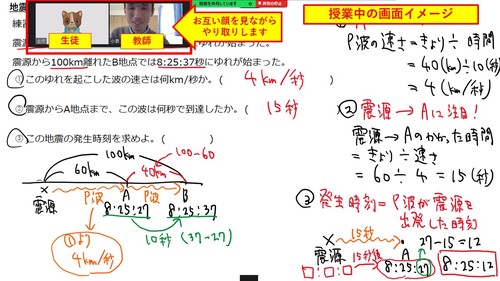 地震
練習
お互い顔を見ながら
やり取りします
生徒
教師
授業中の画面イメージ
震源から100km離れたB地点では8:25:37秒にゆれが始まった。
①このゆれを起こした波の速さは何km/秒か。( 4km/秒 )
②震源からA地点まで、この波は何秒で到達したか。( 15秒 )
③この地震の発生時刻を求めよ。( )
100km
100-60
60km
40km
P波
P波
×
A
B
震源
8:25:27
8:25:37
10秒 (37-27)
①より
4km/秒
P波の速さ=きょり÷時間
=40(km)÷10(秒)
=4(km/秒)
② 震源→Aに注目!
震源→Aのかかった時間
=きょり÷速さ
=60÷4=15(秒)
③ 発生時刻=P波が震源を
出発した時刻
15秒
27-15=12
震源
A
15秒後
8:25:27
8:25:12